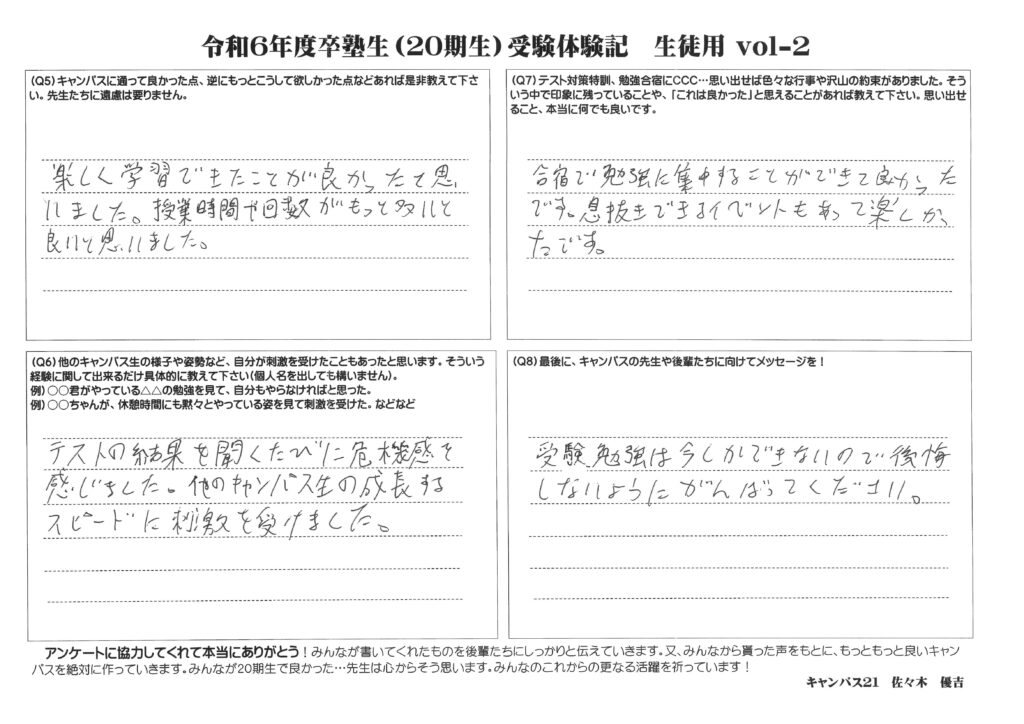 令和6年度卒塾生(20期生)受験体験記　生徒用 vol-2
(Q5)キャンパスに通って良かった点、逆にもっとこうして欲しかった点などあれば是非教えて下さ
い。先生たちに遠慮は要りません。
楽しく学習できたことが良かったと思
いました。授業時間や回数がもっと多いと
良いと思いました。
(Q7)テスト対策特訓、勉強合宿にCCC…思い出せば色々な行事や沢山の約束がありました。そう
いう中で印象に残っていることや、「これは良かった」と思えることがあれば教えて下さい。思い出せ
ること、本当に何でも良いです。
合宿で勉強に集中することができて良かった
です。息抜きできるイベントもあって楽しかっ
たです。
(Q6)他のキャンパス生の様子や姿勢など、自分が刺激を受けたこともあったと思います。そういう
経験に関して出来るだけ具体的に教えて下さい(個人名を出しても構いません)。
例)○○君がやっている△△の勉強を見て、自分もやらなければと思った。
例)○○ちゃんが、休憩時間にも黙々とやっている姿を見て刺激を受けた。などなど
テストの結果を聞くたびに危機感を
感じました。他のキャンパス生の成長する
スピードに刺激を受けました。
(Q8)最後に、キャンパスの先生や後輩たちに向けてメッセージを!
受験勉強は今しかできないので後悔
しないようにがんばってください。
アンケートに協力してくれて本当にありがとう!みんなが書いてくれたものを後輩たちにしっかりと伝えていきます。又、みんなから貰った声をもとに、もっともっと良いキャン
パスを絶対に作っていきます。みんなが20期生で良かった…先生は心からそう思います。みんなのこれからの更なる活躍を祈っています!
キャンパス21　佐々木　優吉